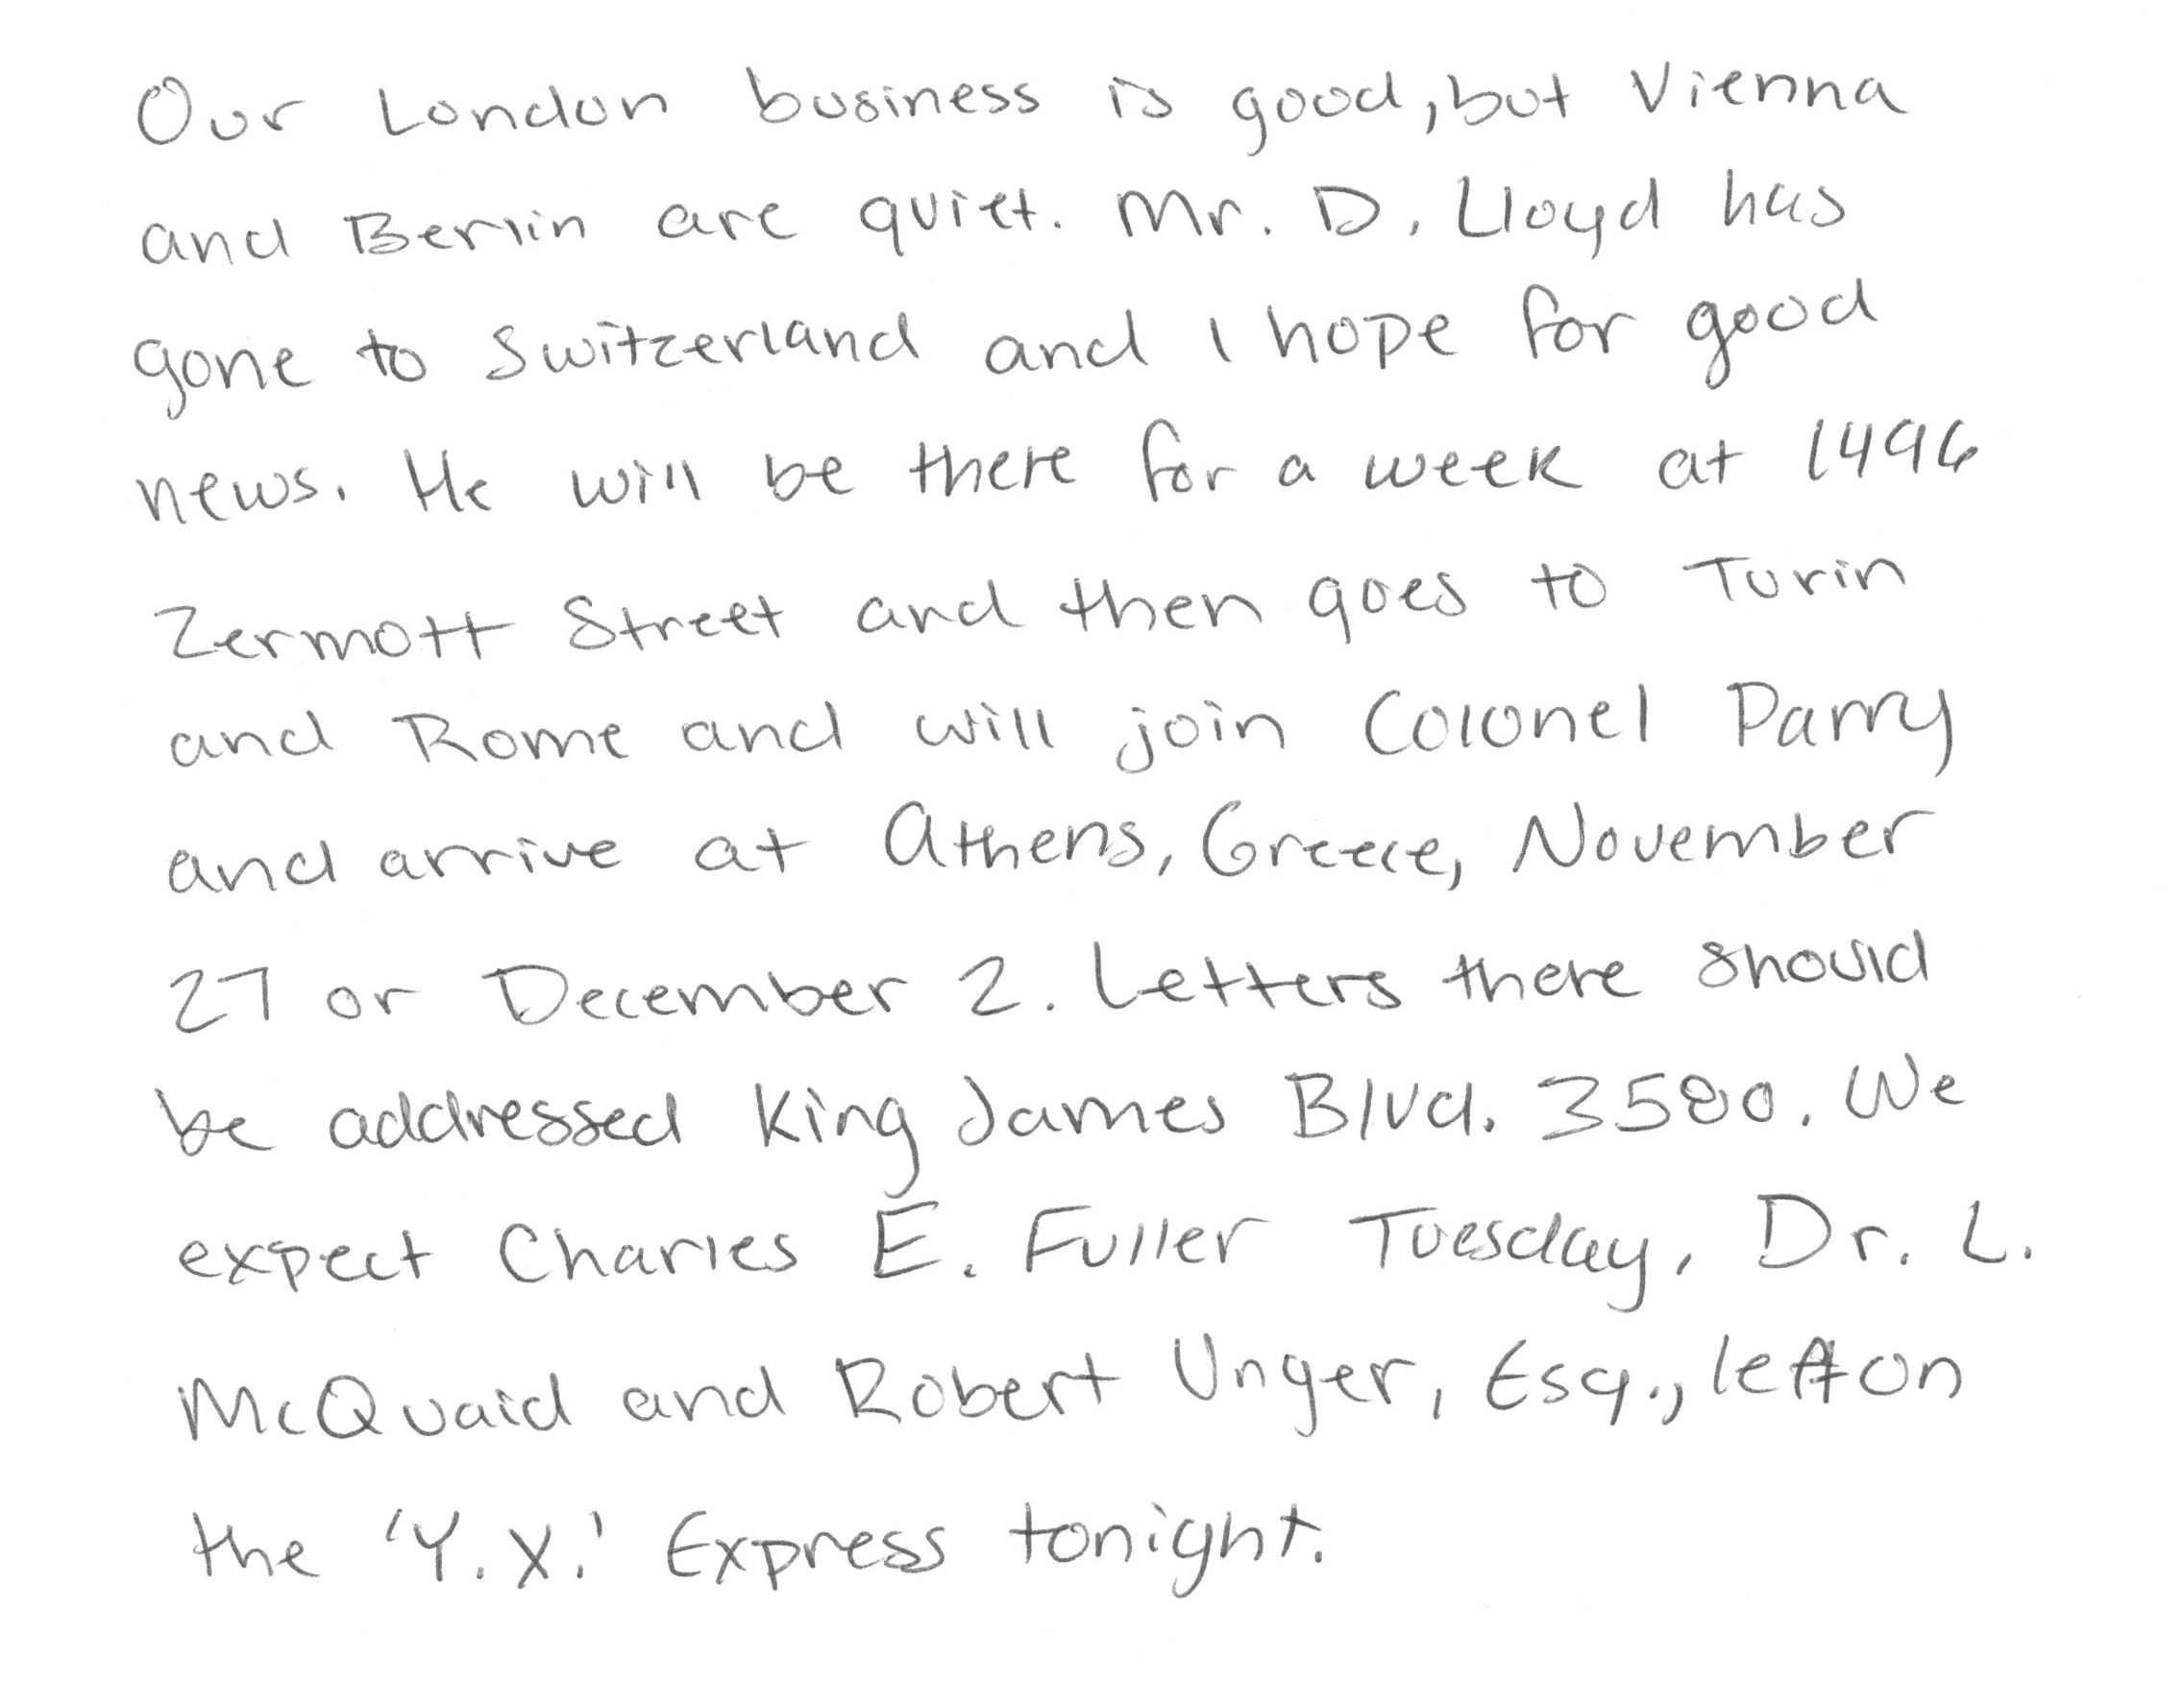 Our London business is good, but Vienna
and Berlin are quiet. Mr. D. Lloyd has
gone to Switzerland and I hope for good
news. He will be there for a week at 1496
Zermott Street and then goes to Turin
and Rome and will join Colonel Parry
and arrive at Athens, Greece, November
27 or December 2. Letters there should
be addressed King James Blvd. 3580. We
expect Charles E. Fuller Tuesday, Dr. L.
McQuaid and Robert Unger, Esq., left on
the 'Y.X.' Express tonight.